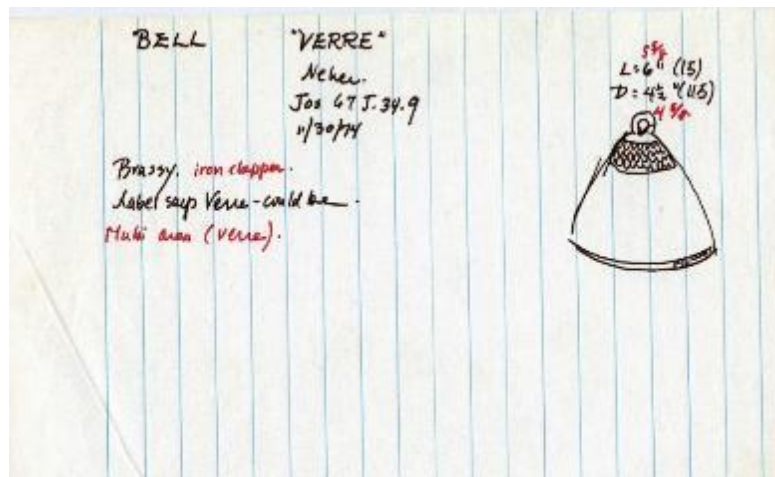 BELL "VERRE"
Neher.
Jos 67 J.34.9
11/30/74
5 5/8
L: 6" (15)
D = 4½" (11.5)
4 5/8
Brassy. iron clapper.
Label says Verre - could be.
Mubi area (Verre).